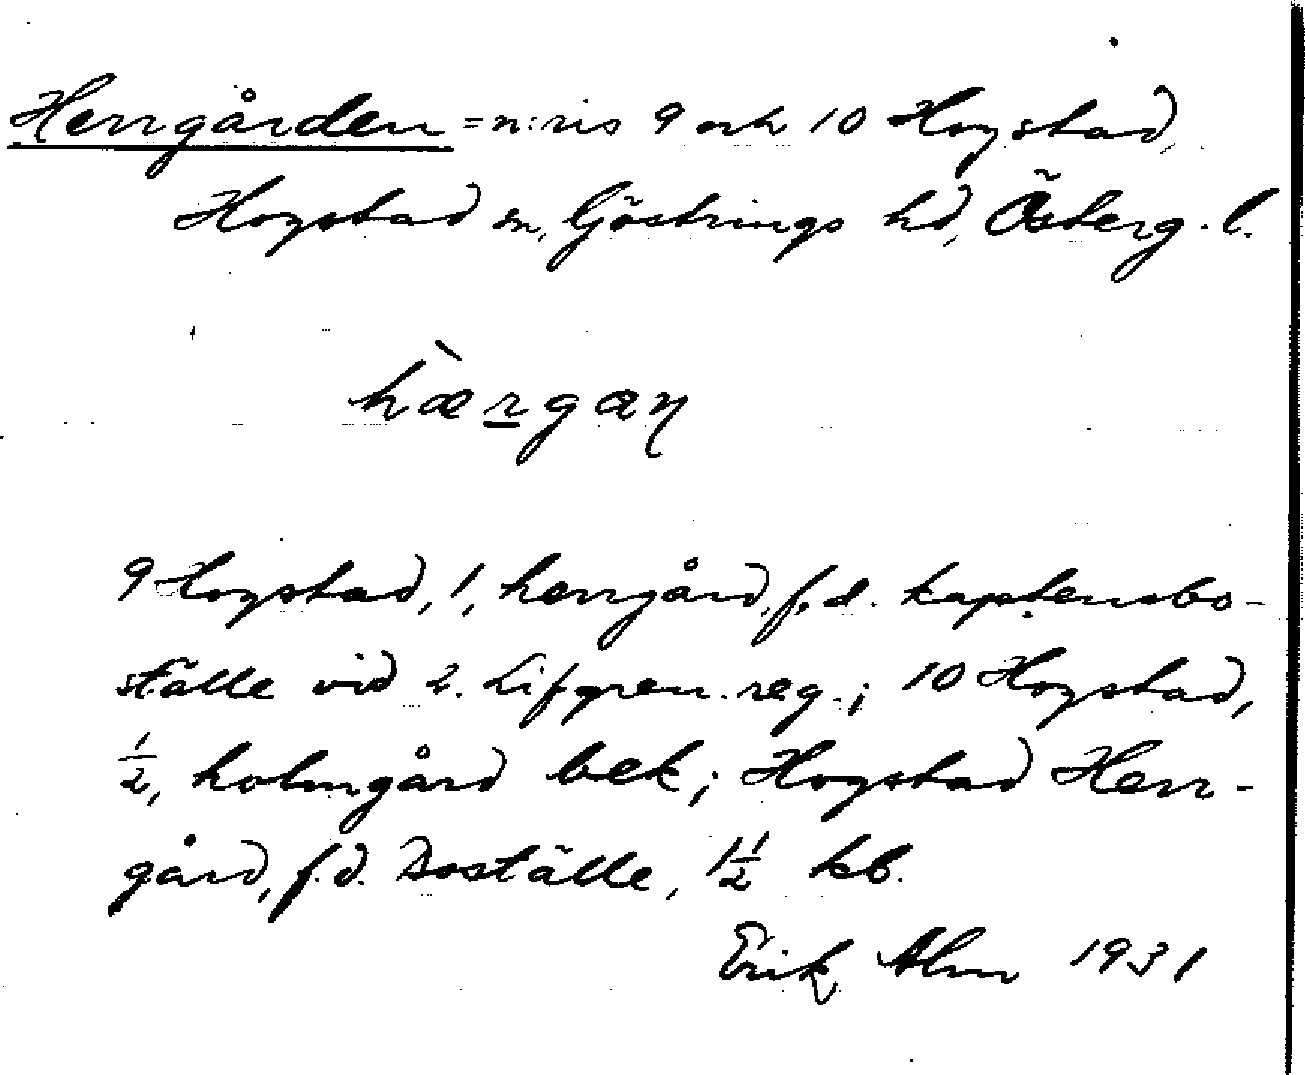 Herrgården = n:ris 9 och 10 Hogstad,
Hogstad sn, Göstrings hd, Österg. l.
hæ̀rgaŋ
9 Hogstad, 1, herrgård, f. d. kaptensbo-
ställe vid 2. Lifgren. reg.; 10 Hogstad,
½, holmgård bek; Hogstad Herr-
gård, f. d. Boställe, 1½ kb.
Erik Alm 1931